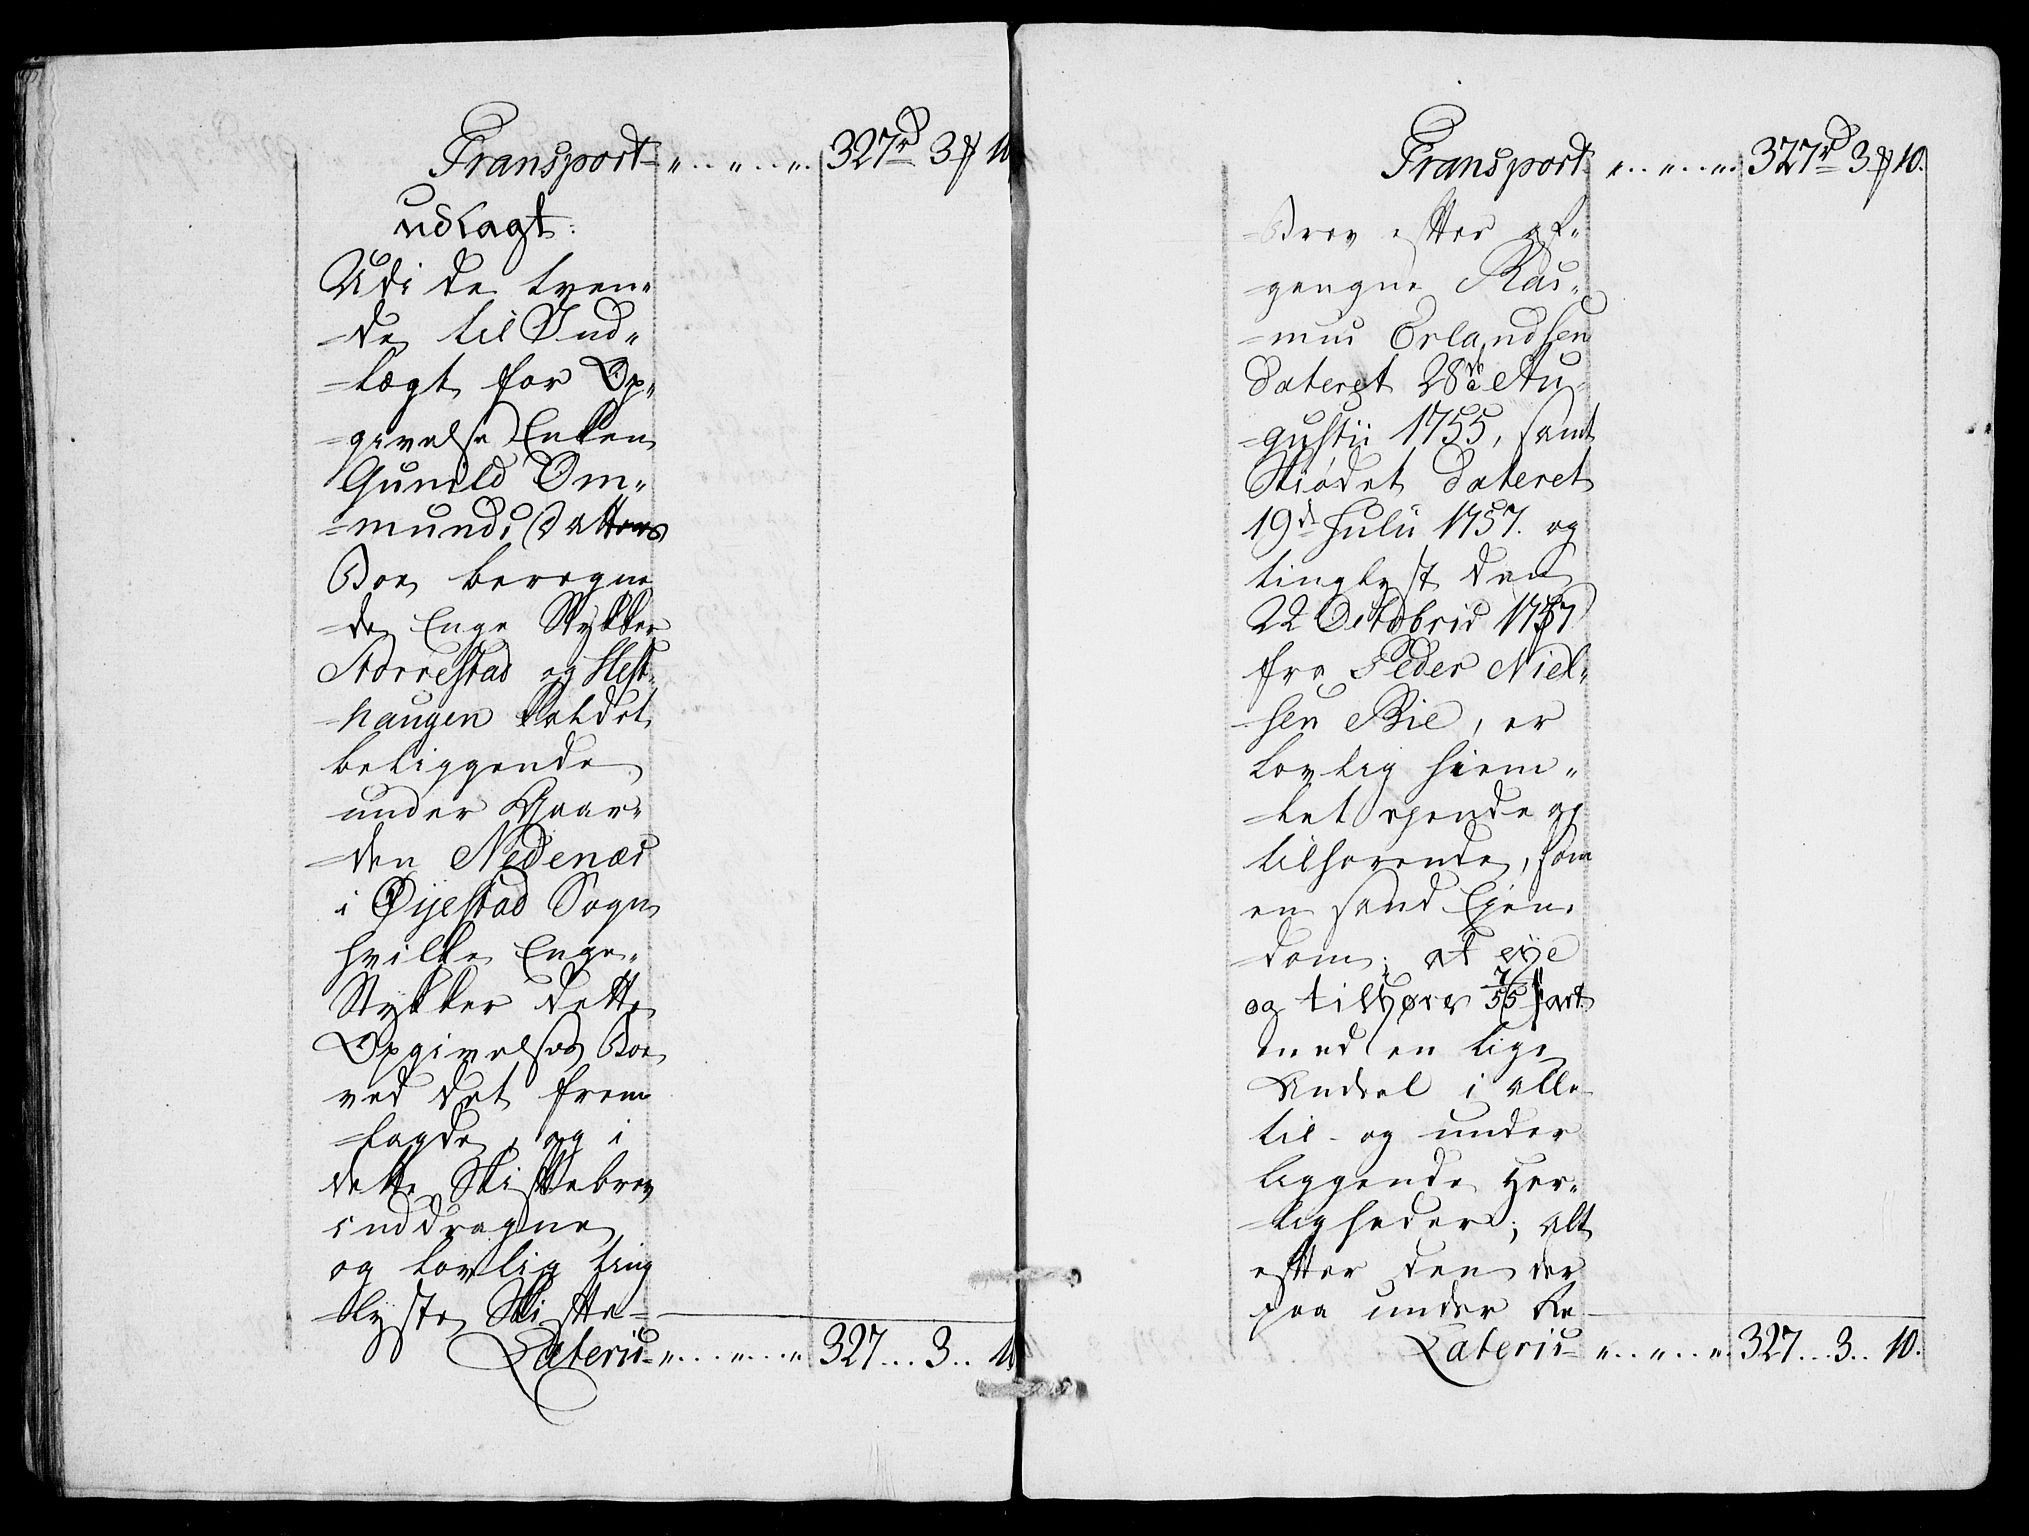 Transport „ . . „ . . „ . 327rd 3 ß 10
udlagt:
Udi de tven„
=de til Ind„
=lægt for Op„
=givelse Enken
Gunild Om„
=munds Datters
Boe beregne
=de Enge Stykker
Torrestad og Hest„
=haugen kaldet
beliggende
under Gaar„
=den Nedenæs
i Øyestad Sogn
hvilke Enge„
Stykker dette
Opgivelses Boe
ved det frem
=lagde, og i
dette Skiftebrev
inddragne
og lovlig ting
=lyste Skifte=
Lateris „ . . . „ . . . „ 327 . . . 3 . . 10
Transport „ . . „ . . „ . 327rd 3 ß 10.
=Brev efter af„
=gangne Ras„
=mus Erlandsen
dateret 28de Au„
=gustii 1755, samt
Skiødet dateret
19de Julii 1757. og
tinglyst den
22 Octobris 1757
fra Peder Niel„
=sen Bie, er
lovlig hiem„
=let eyende og
tilhørende, som
en sand Eyen„
=dom; at eÿe
og tilhøre 7/55 part
med en lige
Andeel i alle
til- og under
liggende Her„
=ligheder; alt
efter den der
paa under Re
Lateris „ . . „ . . „ . 327 . . . 3 . . 10.